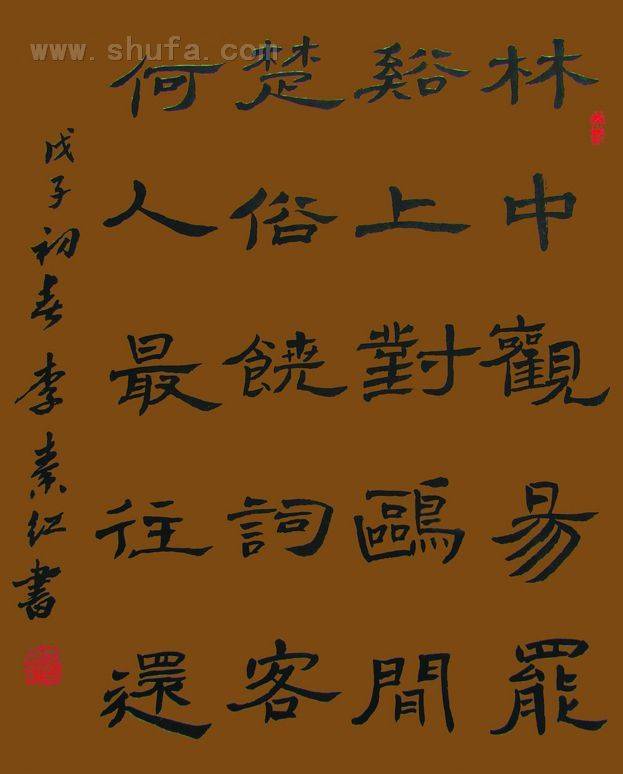 www.shufa.com
林中觀易罷
谿上對鷗閒
楚俗饒詞客
何人最往還
戊子初春李素紅書